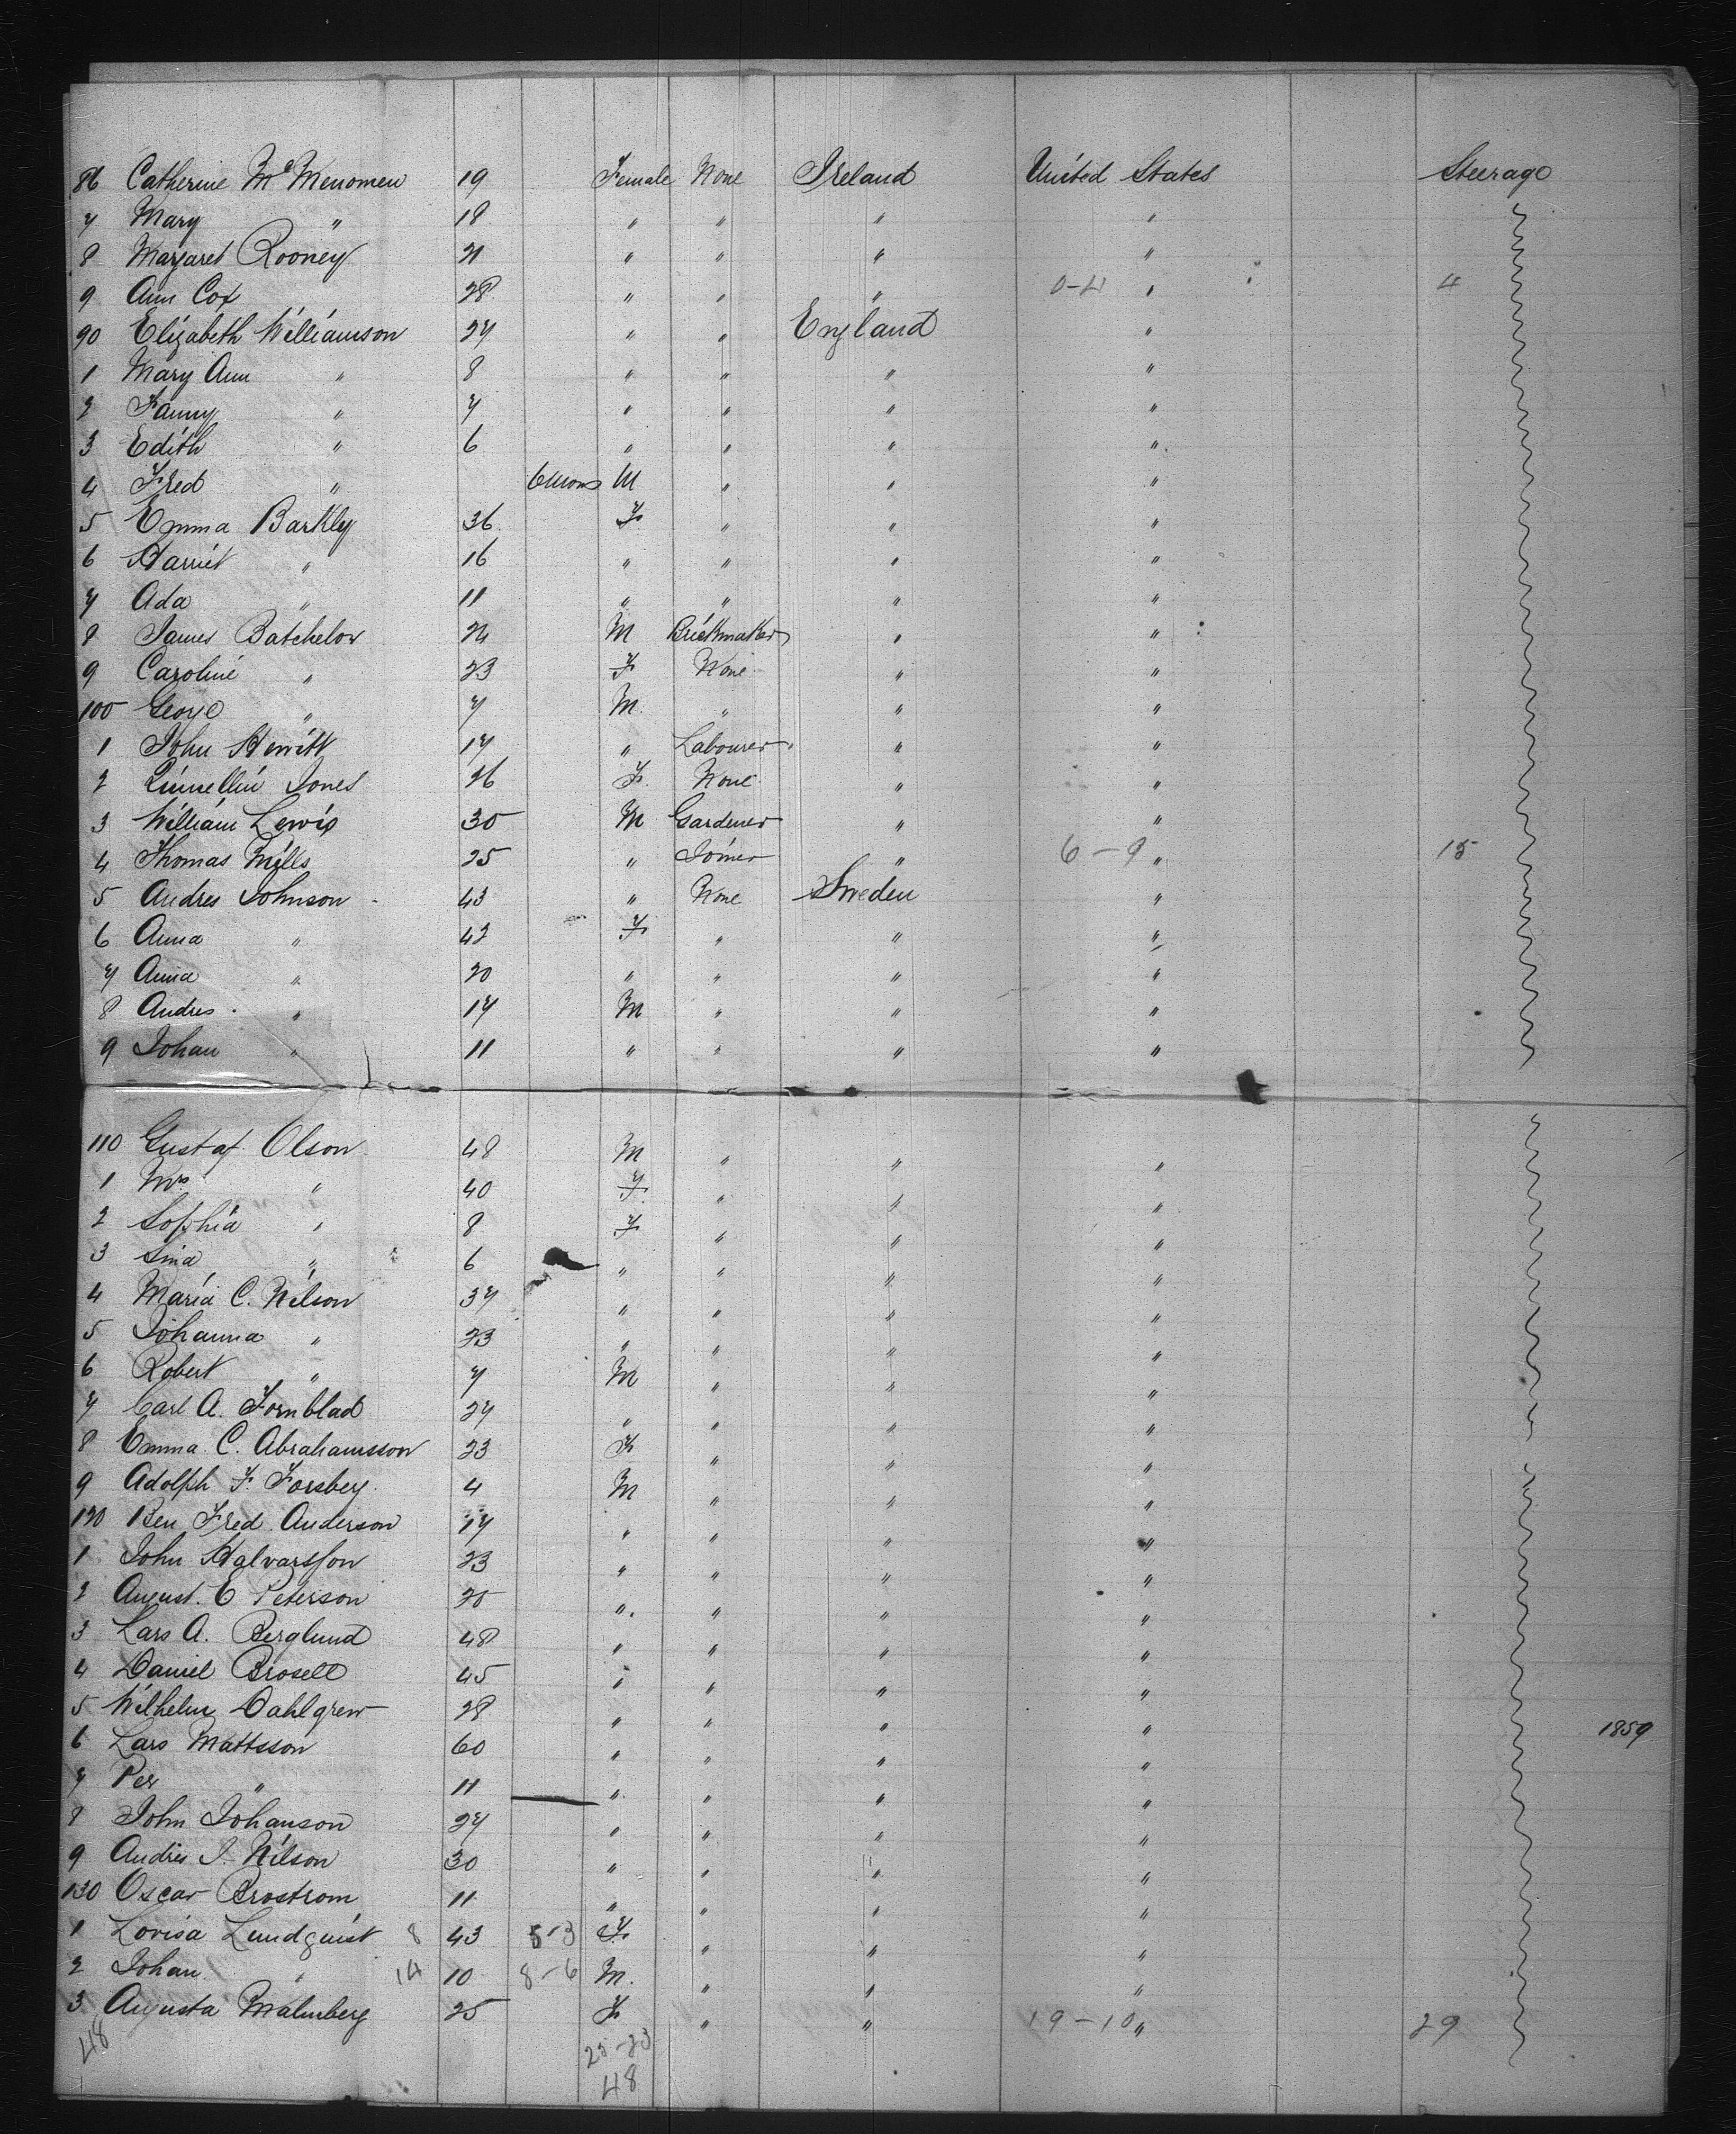 86 Catherine McMenomen 19 Female None Ireland United States Steerage
7 Mary " 18 " " " "
8 Margaret Rooney 21 " " " "
9 Ann Cox 28 " " " 0-4 " 4
90 Elizabeth Williamson 27 " " England "
1 Mary Ann " 8 " " " "
2 Fanny " 7 " " " "
3 Edith " 6 " " " "
4 Fred " 6 mons M " " "
5 Emma Barkley 36 F " " "
6 Harriet " 16 " " " "
7 Ada " 11 " " " "
8 James Batchelor 24 M Brickmaker " "
9 Caroline " 23 F None " "
100 George " 7 M " " "
1 John Hewitt 17 " Labourer " "
2 Jones 26 F None " "
3 William Lewis 30 M Gardener " "
4 Thomas Mills 25 " Joiner " 6-9 " 15
5 Andres Johnson 43 " None Sweden "
6 Anna " 42 F " " "
7 Anna " 20 " " " "
8 Andres " 17 M " " "
9 Johan " 11 " " " "
110 Gustaf Olson 48 M " " "
1 Mrs " 40 F " " "
2 Sophia " 8 F " " "
3 Sina " 6 " " " "
4 Maria C. Nilson 37 " " " "
5 Johanna " 23 " " " "
6 Robert " 7 M " " "
7 Carl A. Fornblad 27 " " " "
8 Emma C. Abrahamsson 23 F " " "
9 Adolph F. Forsberg 4 M " " "
120 Ben Fred Anderson 17 " " " "
1 John Halvarsson 23 " " " "
2 August. E Peterson 20 " " " "
3 Lars A. Berglund 48 " " " "
4 Daniel Brosell 45 " " " "
5 Wilhelm Dahlgren 28 " " " "
6 Lars Mattsson 60 " " " " 1859
7 Per " 11 " " " "
8 John Johanson 27 " " " "
9 Andres J. Nilson 30 " " " "
130 Oscar Brostrom 11 " " " "
1 Lovisa Lundquist 8 43 5-3 F " " "
2 Johan " 14 10 8-6 M. " " "
3 Augusta Malmberg 25 F " " 19-10 " 29
48 25-23
48